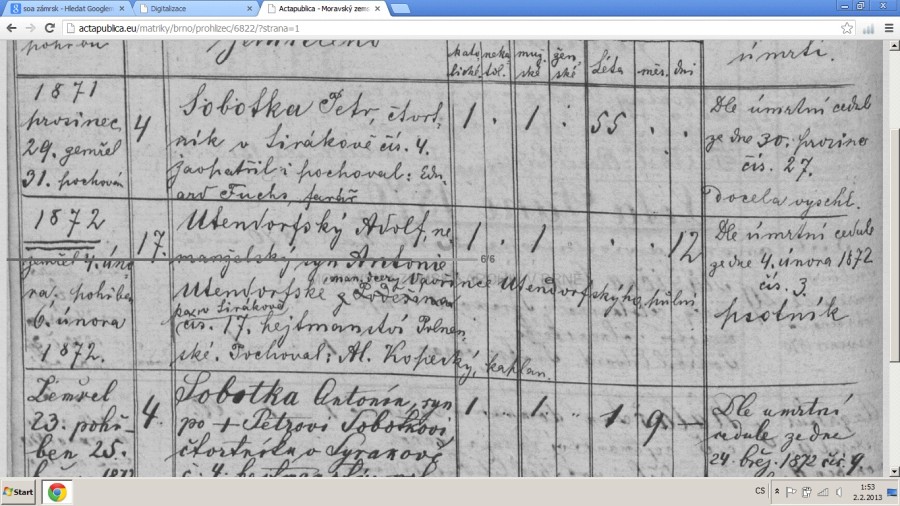 soa zámrsk - Hledat Googlem
Digitalizace
Actapublica - Moravský zems
actapublica.eu/matriky/brno/prohlizec/6822/?strana=1
pohřbu
zemřelého
kato
lické.
neka
tol.
muž
ské
žen
ské
Léta
měs.
dni
úmrtí.
1871
prosinec
29. zemřel
31. pochován
4
Sobotka Petr, čtvrt,
ník v Sirákově čís. 4.
zaopatřil i pochoval: Edu
ard Fuchs, farář
1 . 1 . 55 . .
Dle úmrtní cedule
ze dne 30. prosince
čís. 27.
Docela vyschl.
1872
zemřel 4. úno
ra. pohřben
6. února
1872.
17.
Utendorfský Adolf, ne
manželský syn Antonie
manž. dcery Vavřince Utendorfskýho,
Utendorfské z
čís. 17. hejtmanství Polnen
ské. Pochoval: Al. Kopecký, kaplan.
1 . 1 . . . 12
6/6
Dle úmrtní cedule
ze dne 4. února 1872
čís. 3.
psotník
Zemřel
23. pohř
ben 25.
4.
Sobotka Antonín, syn
po + Petrovi Sobotkovi
čtvrtníku v Syrakově
č. 4.
1. . 1. . 1. 9. —
Dle umrtní
cedule ze dne
24. břez. 1872 čís. 9.
Start
CS
1:53
2.2.2013